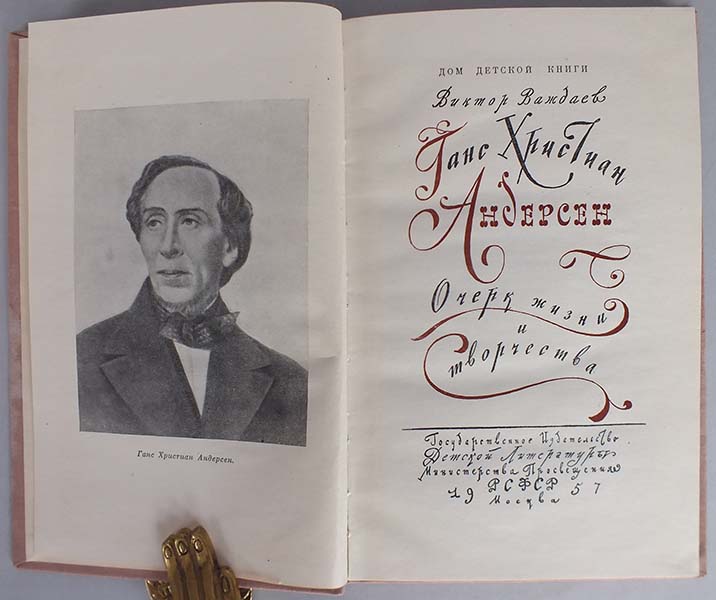 Ганс Христиан Андерсен.
ДОМ ДЕТСКОЙ КНИГИ
Виктор Важдаев
Ганс Христиан
Андерсен
Очерк жизни
и
творчества
Государственное Издательство
Детской Литературы
Министерства Просвещения
РСФСР
1957
Москва